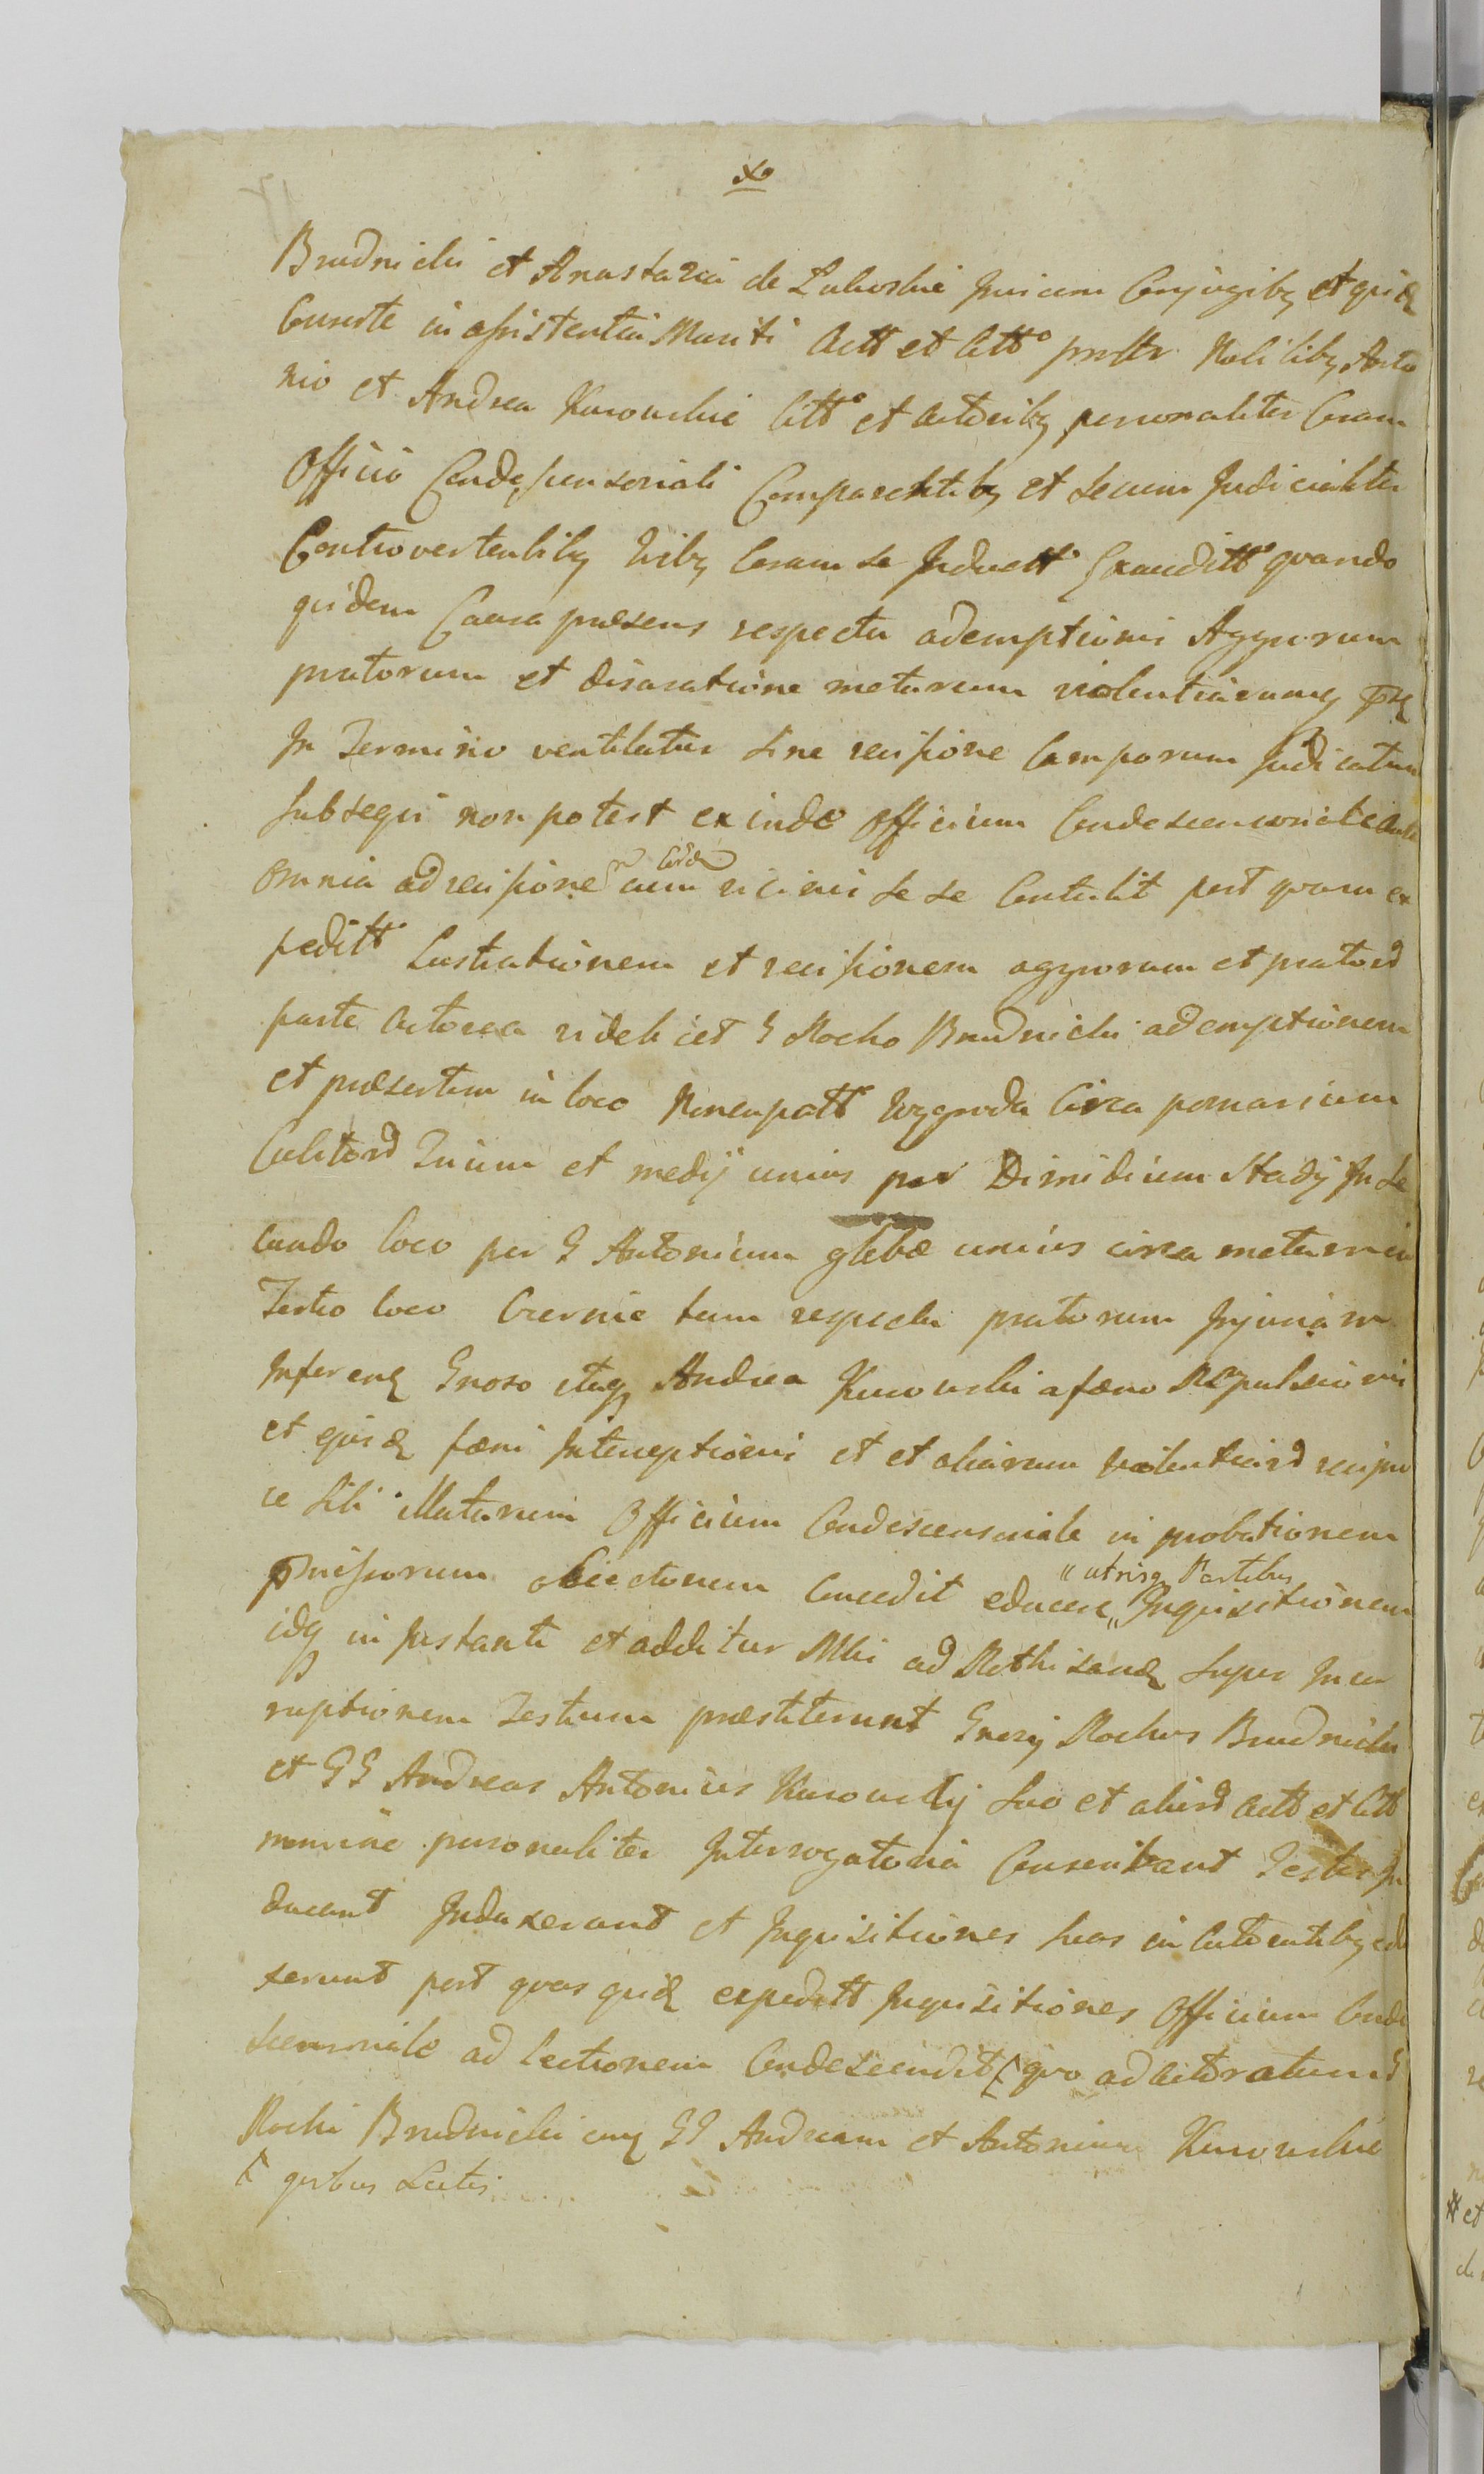 Brudnicki et Anastazia de Luboskie Invicem Conjugibꝫ et quidꝫ
Consorte in assistentia Mariti Actt et Citt° Nobilibꝫ Anto
nio et Andrea Kurowskie Citt° et Actoribꝫ personaliter Coram
Officio Condescensoriali Comparentibꝫ et secum Judicialiter
Controvertentibꝫ Coram se Induett° Exauditt° quando
quidem Causa præsens respectu ademptionis Aggrorum
pratorum et disaratione metarum violentiarumꝗ
In Termino ventilatur sine revisione Camporum Judicatum
subsequi non potest exinde Officium Condescensoriale Ante
omnia ad revisione cum vicinis se se Contulit post quam ex
peditt° Lustrationem et revisionem aggrorum et prator
parte Actorea videlicet G Rocho Brudnicki ademptionem
et præsertim in loco Nuncupatt° Wygroda Circa pomarium
Cultor Trium et medij unius per Dimidium Stadij In se
cundo loco per G Antonium glebæ unius circa metam in
Tertio loco Czernie tum respectu pratorum Injuriam
Inferenꝫ Groso itaqꝫ Andrea Kurowski a fæno Repulsionis
et ejusdꝫ fæni Interceptionis et et aliarum violentiar recipro
ce sibi illatarum Officium Condescensoriale in probationem
præmissorum obiectorum Concedit educere "utrisqꝫ Partibus" Inquisitionem
idqꝫ in instanti et additur Mbi ad Rothisandꝫ super Incor
ruptionem Testium præstiterunt Grosij Rochus Brudnicki
et GG Andreas Antonius Kurowscij suo et alior Actt et Citt
nomine personaliter Interrogatoria Conscribant Testes In
ducant Induxerunt et Inquisitiones suas in Autentibꝫ edu
xerunt post quas quidꝫ expeditt Inquisitiones Officium Conde
scensoriale ad lectionem Condescendit quo ad Actoratum G
Rochi Brudnicki cum GG Andream et Antonium Kurowskie
quibus Lectis